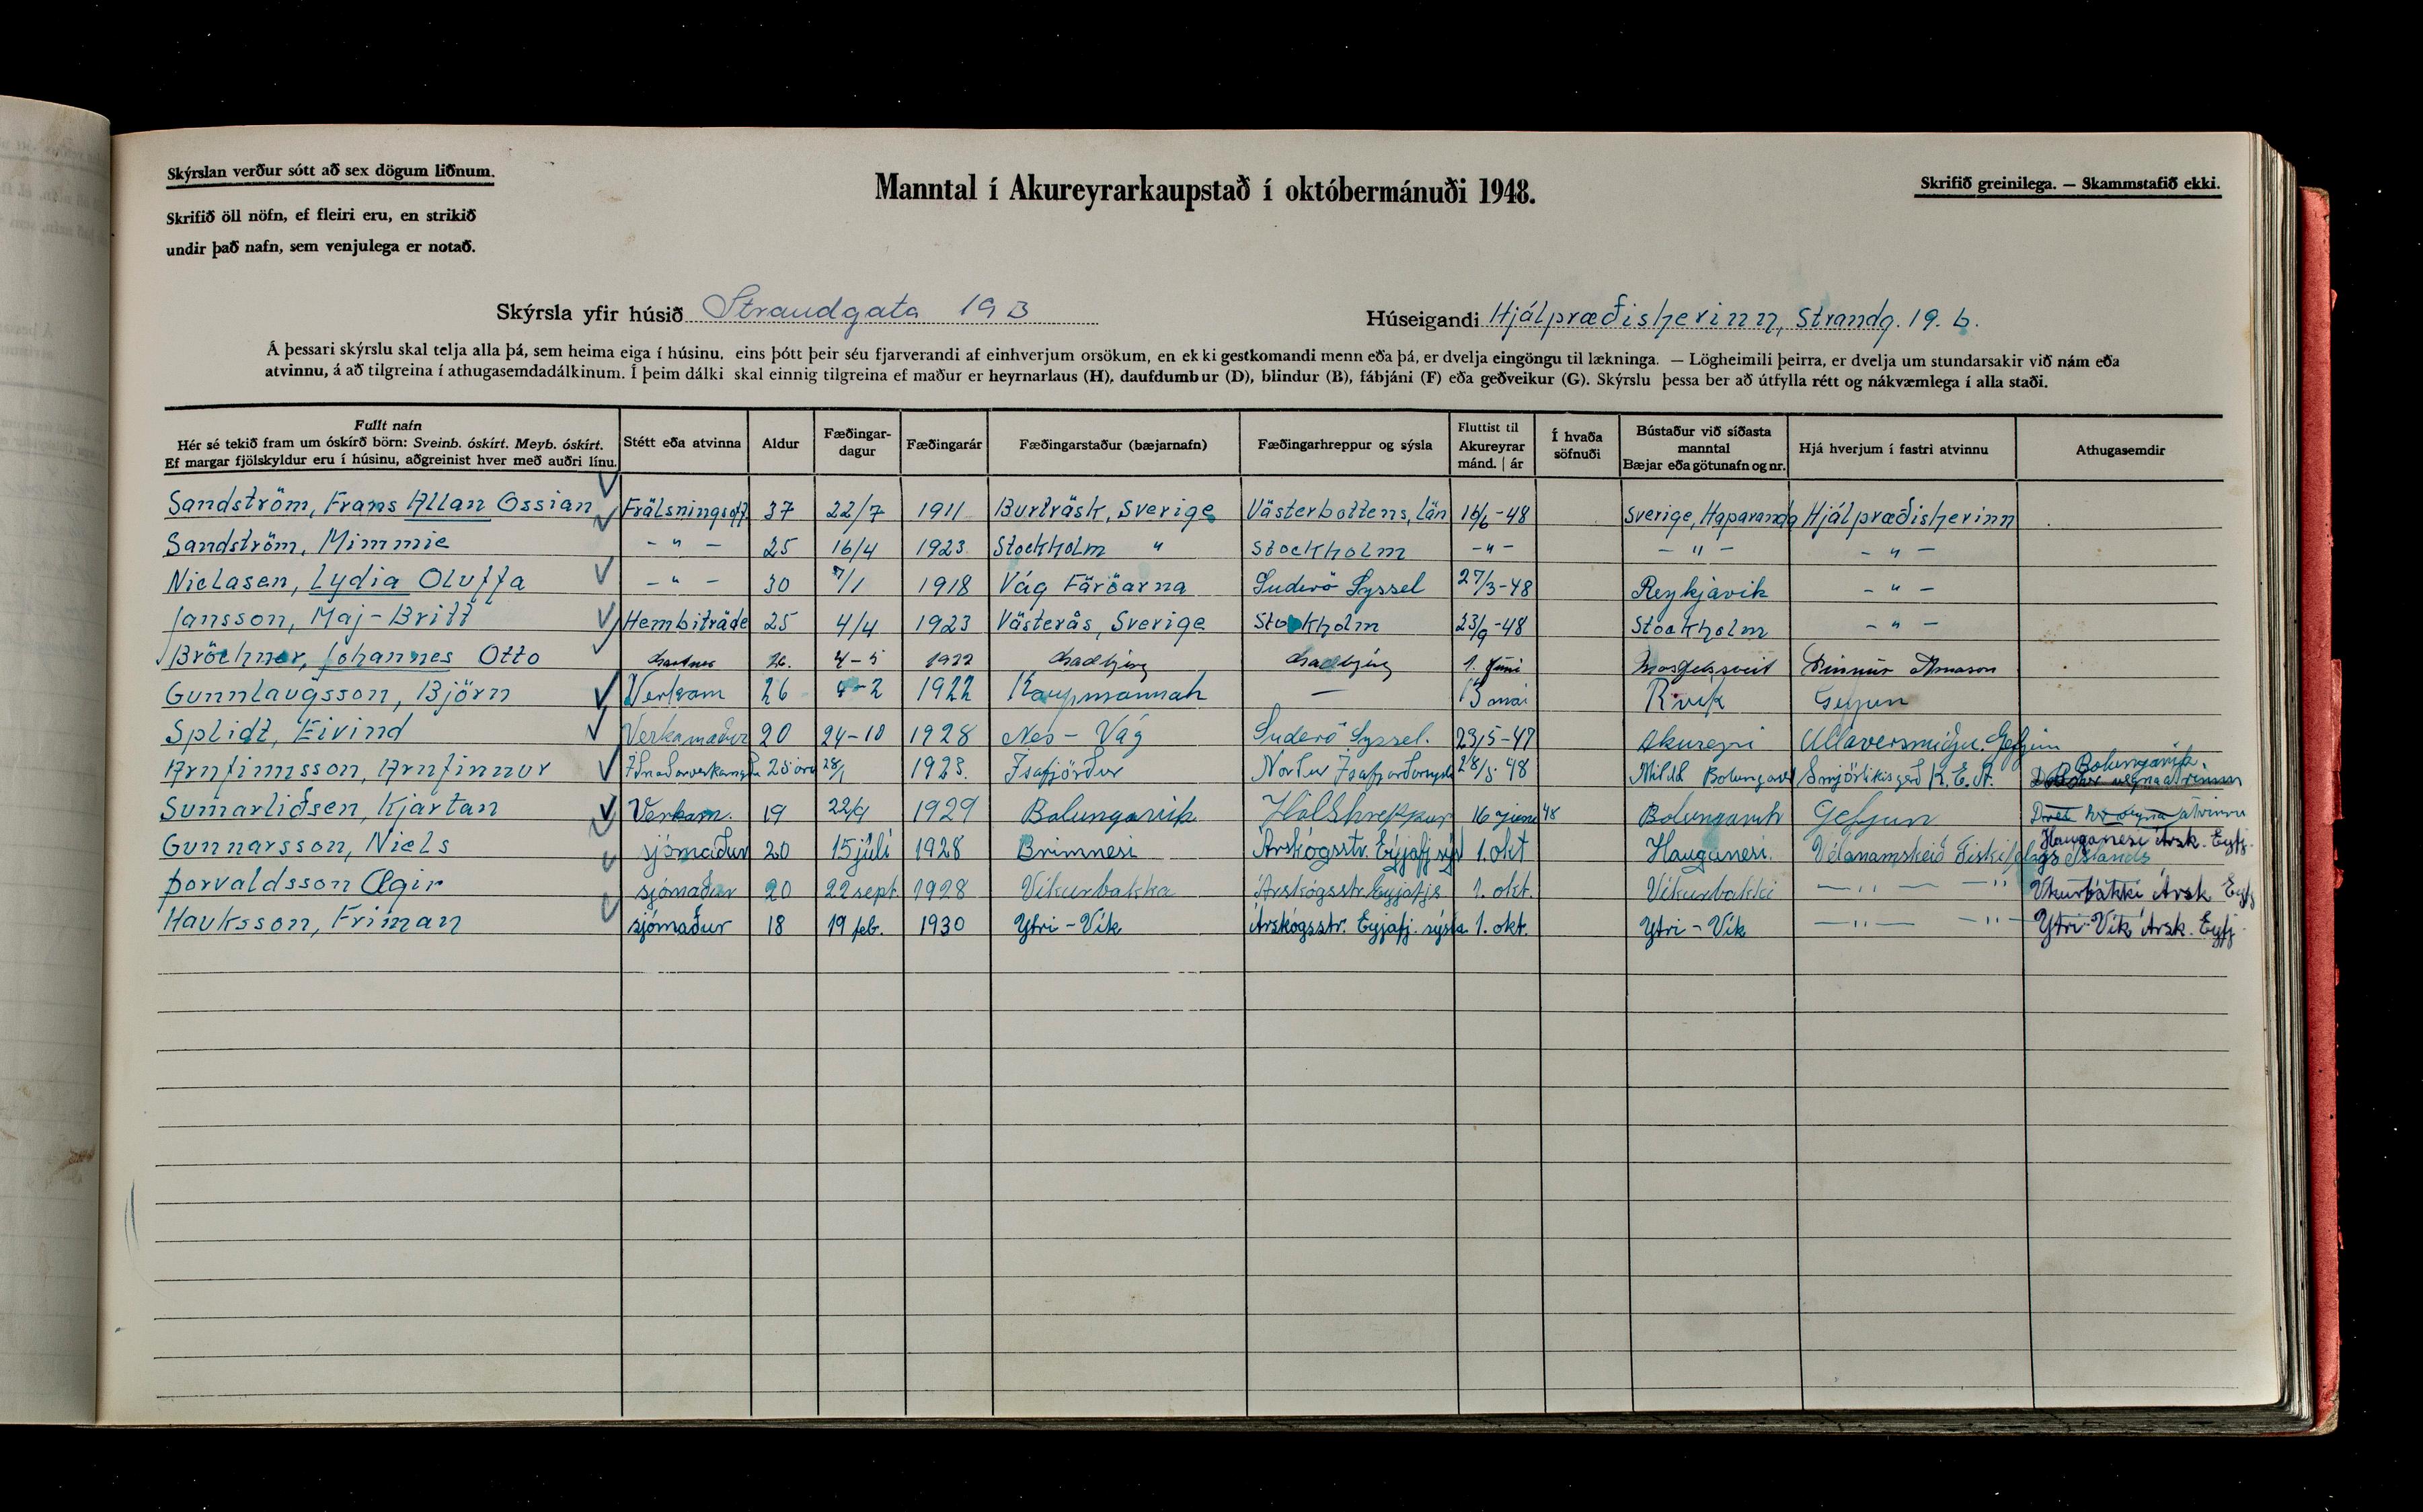 Skýrslan verður sótt að sex dögum liðnum.
Manntal í Akureyrarkaupstað í októbermánuði 1948.
Skrifið greinilega. — Skammstafið ekki.
Skrifið öll nöfn, ef fleiri eru, en strikið
undir það nafn, sem venjulega er notað.
Skýrsla yfir húsið Strandgata 19 B
Húseigandi Hjálpræðisherinn, Strandg. 19. b.
Á þessari skýrslu skal telja alla þá, sem heima eiga í húsinu, eins þótt þeir séu fjarverandi af einhverjum orsökum, en ekki gestkomandi menn eða þá, er dvelja eingöngu til lækninga. — Lögheimili þeirra, er dvelja um stundarsakir við nám eða
atvinnu, á að tilgreina í athugasemdadálkinum. Í þeim dálki skal einnig tilgreina ef maður er heyrnarlaus (H), daufdumbur (D), blindur (B), fábjáni (F) eða geðveikur (G). Skýrslu þessa ber að útfylla rétt og nákvæmlega í alla staði.
Fullt nafn
Hér sé tekið fram um óskírð börn: Sveinb. óskírt. Meyb. óskírt.
Ef margar fjölskyldur eru í húsinu, aðgreinist hver með auðri línu.
Stétt eða atvinna
Aldur
Fæðingar-
dagur
Fæðingarár
Fæðingarstaður (bæjarnafn)
Fæðingarhreppur og sýsla
Fluttist til
Akureyrar
mánd. | ár
Í hvaða
söfnuði
Bústaður við síðasta
manntal
Bæjar eða götunafn og nr.
Hjá hverjum í fastri atvinnu
Athugasemdir
Sandström, Frans Allan Ossian Frälsningsoff 37 22/7 1911 Burträsk, Sverige Västerbottens, län 16/6-48 Sverige, Haparanda Hjálpræðisherinn
Sandström, Mimmie - " - 25 16/4 1923 Stockholm " Stockholm - " - - " - - " -
Niclasen, Lydia Oluffa - " - 30 7/1 1918 Våg Färöarna Suderö Syssel 27/3-48 Reykjavik - " -
Jansson, Maj-Britt Hembiträde 25 4/4 1923 Västerås, Sverige Stockholm 23/9-48 Stockholm - " -
Bröchner, Johannes Otto 26. 4-5 1922 1. Juni Mosfellssveit Arnason
Gunnlaugsson, Björn Verkam 26 9-2 1922 Kaupmannah — 13 mai Rvik Gefjun
Splidt, Eivind Verkamaður 20 24-10 1928 Nes - Våg Suderö Syssel. 23/5-47 Akureyri Ullaversmiðju. Gefjun
Arnfinnsson, Arnfinnur Iðnaðarverkam 28/1 1923. Ísafjörður Norður Ísafjarðarsýsla 28/5. 48 Bolungarvík Smjörlíkisgerð K.E.A. Bolungarvík.
Sumarliðsen, Kjartan Verkam. 19 22/9 1929 Bolungarvik Hólshreppur 16 júni 48 Bolungarvik Gefjun
Gunnarsson, Niels sjómaður 20 15 júlí 1928 Brimnesi Árskógsstr. Eyjafj. sýsl 1. okt Hauganesi. Vélanámskeið Fiskifélags Íslands Hauganesi Ársk. Eyfj.
Þorvaldsson Ægir sjómaður 20 22 sept. 1928 Víkurbakka Árskógsstr. Eyjafjs 1. okt. Víkurbakki — " — — " Víkurbakki Ársk. Eyfj
Hauksson, Friman sjómaður 18 19 feb. 1930 Ytri-Vík Árskógsstr. Eyjafj. sýsla 1. okt. Ytri-Vík — " — — " — Ytri-Vík Ársk. Eyfj.